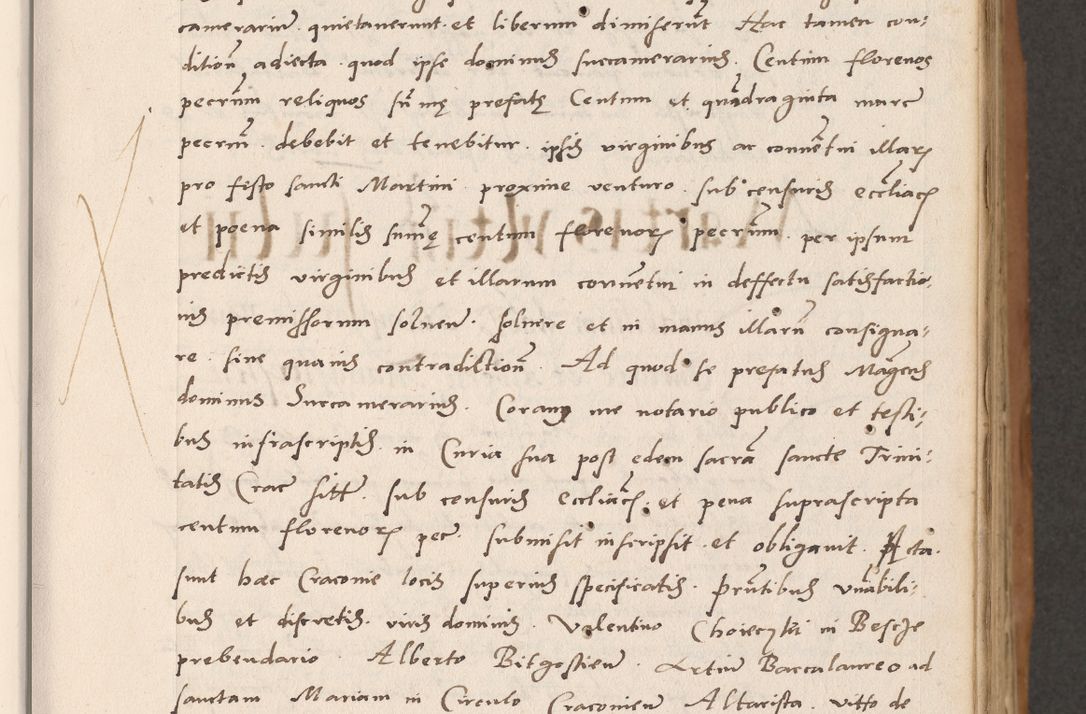 camerariũ quietaverunt et liberum dimiserũt Hac tamen con:
ditioñ adiecta quod ipse dominus succamerarius Centum florenos
pecuñ reliquos sũmę prefatę Centum et quadraginta marc
pecuñ debebit et tenebitur ipsis virginibus ac convẽtui illarʒ
pro festo sancti Martini proxime venturo sub censuris eccliacʒ
et poena similis summę centum florenorʒ pecuñ per ipsum
predictis virginibus et illarum convẽtui in deffectu satisfactio:
nis premissorum solveñ solvere et in manus illarũ consigna:
re sine quavis contradictioñ Ad quod se prefatus Magcus
dominus Succamerarius Coram me notario publico et testi:
bus infrascriptis in Curia sua post edem sacrã sancte Trini:
tatis Crac sitt sub censuris eccliacʒ et pena suprascripta
centum florenorʒ pec submisit inscripsit et obligavit Acta
sunt haec Cracovie locis superius specificatis prñtibus vnãbili:
bus et discretis viris dominis Valentino Choieczki in Besche
prebendario Alberto Bitgostieñ Artiũ Baccalaureo ad
sanctam Mariam in Circulo Cracovieñ Altarista vitto de